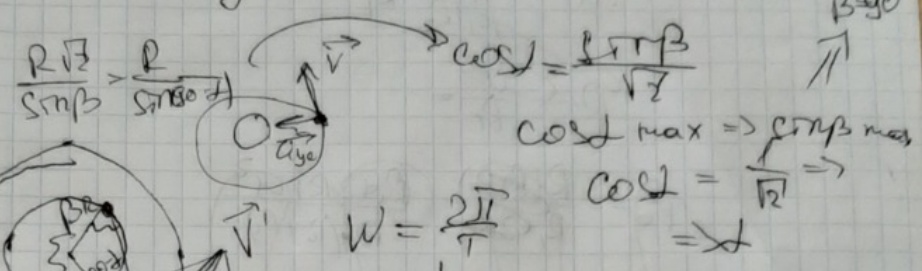 β=90
R√2/sinβ = R/sin(90-α)
V⃗
cosα = sinβ/√2
a⃗yc
cosα max => sinβ max
cosα = 1/√2 =>
=> α
V⃗'
W = 2π/T
β